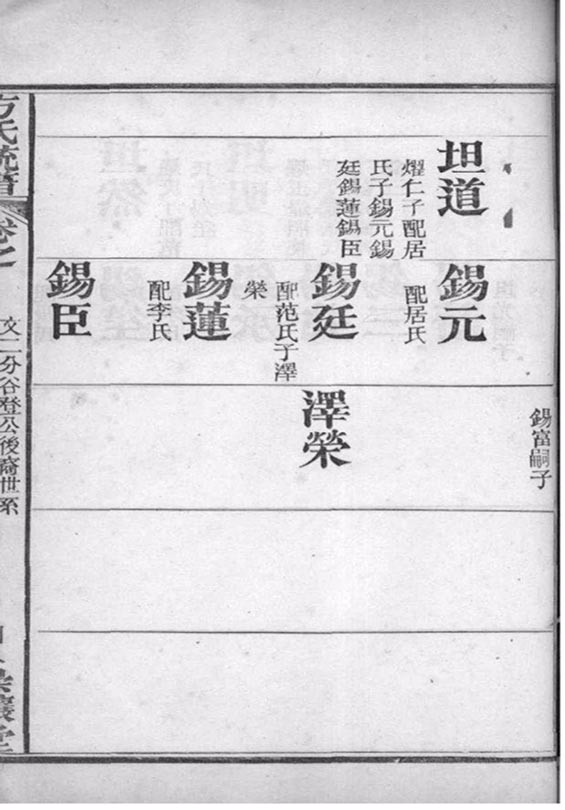 坦道
燿仁子配居
氏子錫元錫
廷錫蓮錫臣
錫元
配居氏
錫廷
配范氏子澤
榮
錫蓮
配李氏
錫臣
錫富嗣子
澤榮
方氏統譜
卷之
文二分谷登公後裔世系